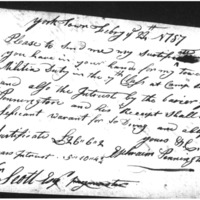 York Town July 9th 1787
Please to Send me my Certificate
you have in your hands for my Tour
Militia Duty in the 7th Class at Camp
and also the Interest by the bearer
Pennington and his Receipt Shall
Suficient warant for So Doing and
Certificate £26-6-2
Interest
Ephraim Pennington
Scott Esqr